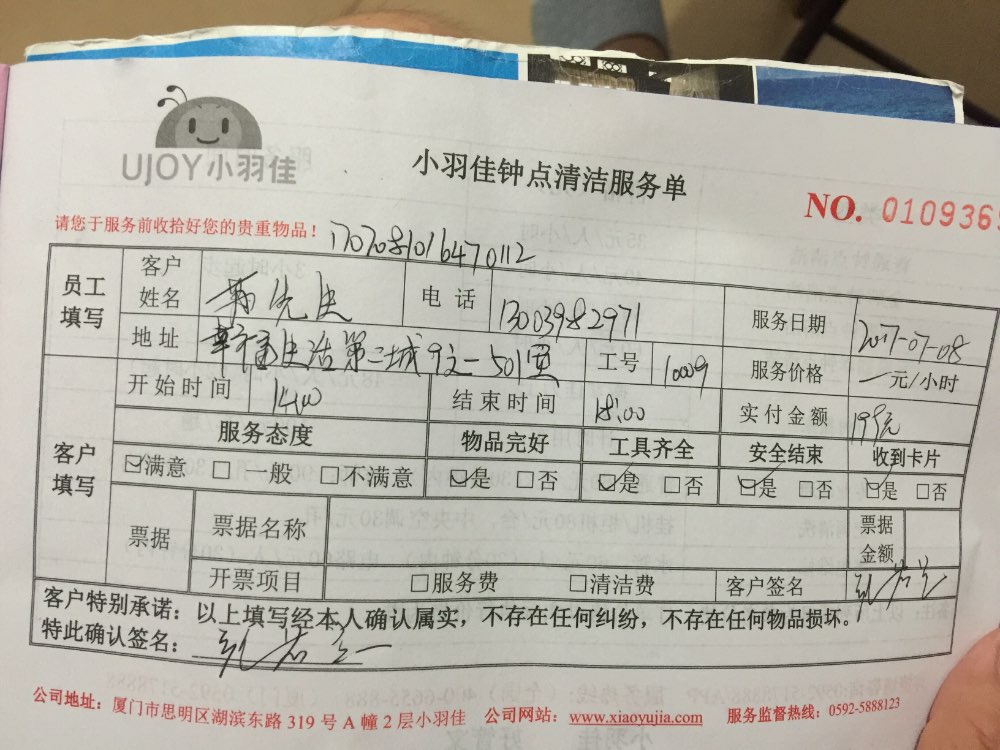 UJOY小羽佳
小羽佳钟点清洁服务单
NO. 010936
请您于服务前收拾好您的贵重物品！
1707081016470112
员工填写 客户姓名 电话 13003982971 服务日期 2017-07-08
地址 第二城 501 工号 10009 服务价格 一元/小时
开始时间 14:00 结束时间 18:00 实付金额 199元
客户填写 服务态度 物品完好 工具齐全 安全结束 收到卡片
☑满意 □一般 □不满意 ☑是 □否 ☑是 □否 ☑是 □否 ☑是 □否
票据 票据名称 票据金额
开票项目 □服务费 □清洁费 客户签名
客户特别承诺：以上填写经本人确认属实，不存在任何纠纷，不存在任何物品损坏。
特此确认签名：
公司地址：厦门市思明区湖滨东路 319 号 A 幢 2 层小羽佳 公司网站：www.xiaoyujia.com 服务监督热线：0592-5888123